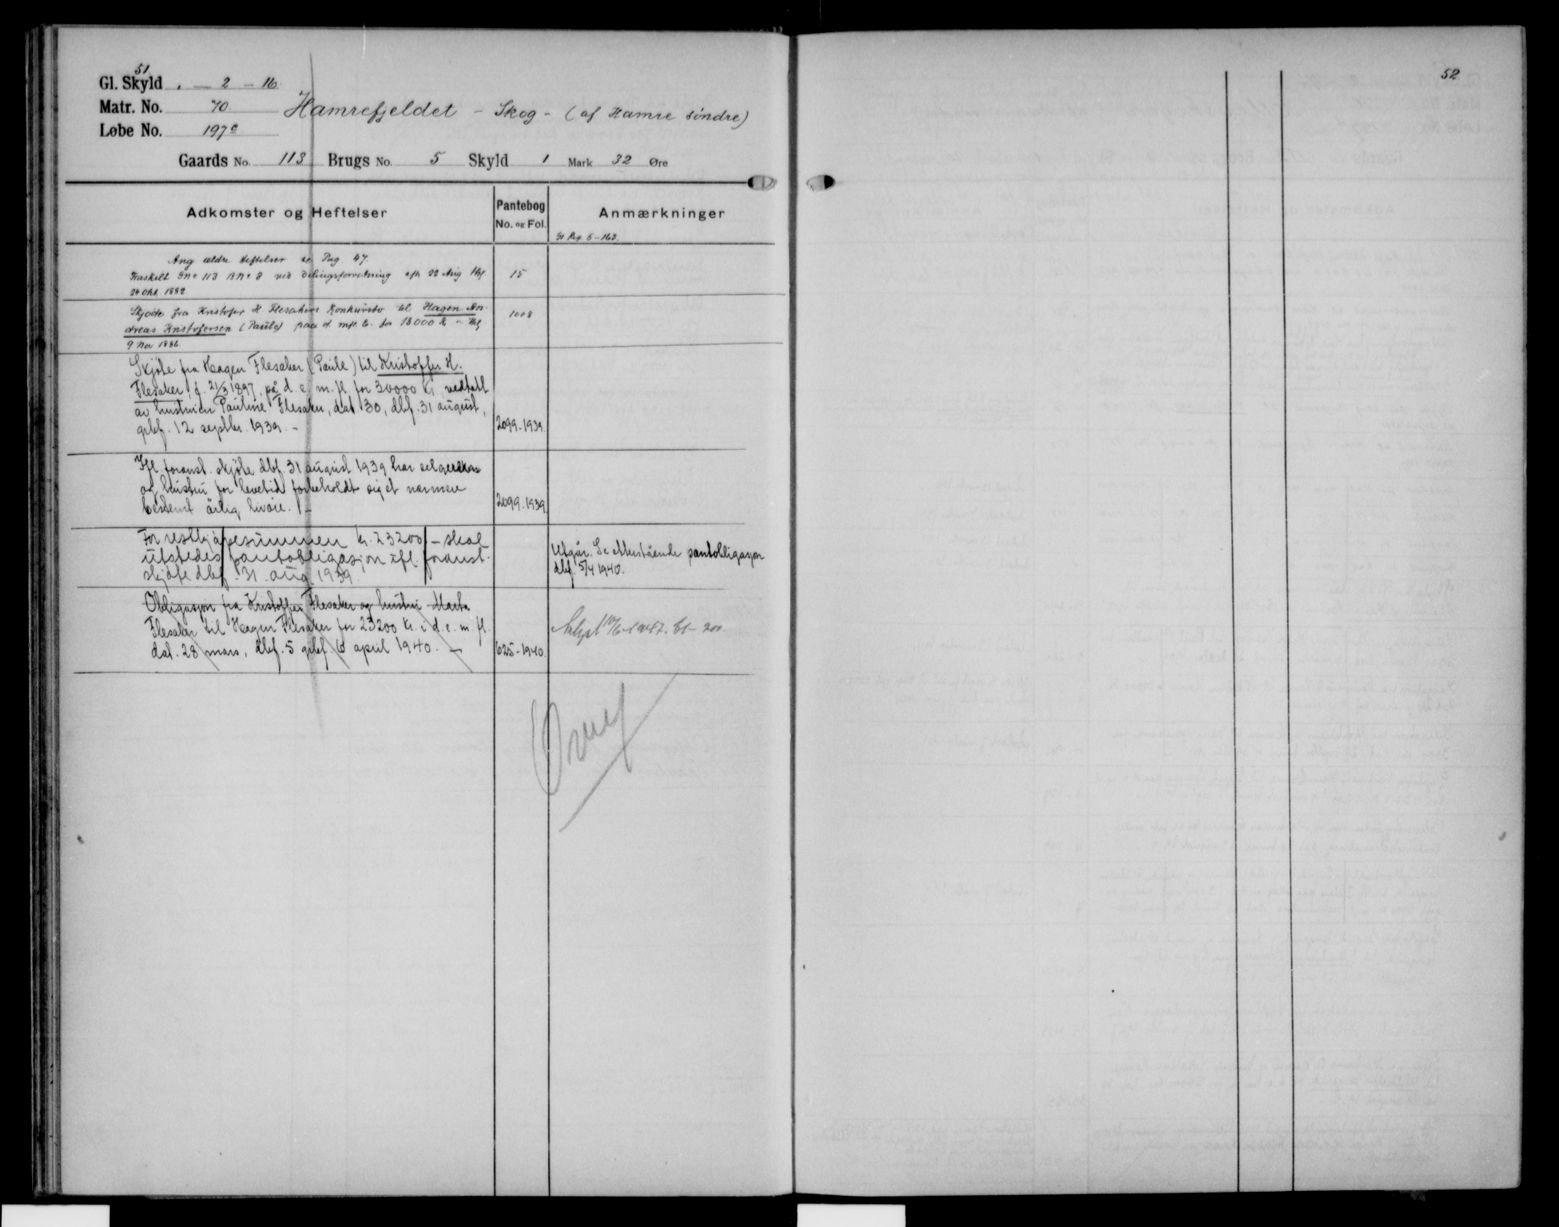 51
52
Gl. Skyld . — 2 — 16
Matr. No. 70
Hamrefjeldet - Skog - (af Hamre søndre)
Løbe No. 197c
Gaards No. 113 Brugs No. 5 Skyld 1 Mark 32 Øre
Adkomster og Heftelser
Pantebog
No. og Fol.
Anmærkninger
Gl Reg. 5-163
Ang ældre Heftelser se Pag 47.
fraskilt GNo 113 BNo 8 ved Delingsforretning efter 22 Aug thl.
24 Okt. 1882
15
Skjøde fra Kristofer H Flesakers Konkursbo til Hagen An-
dreas Kristofersen (Paule) paa d mfl E. for 18000 Kr - thl
9 Nov 1886.
1008
Skjøte fra Hagen Flesaker (Paule) til Kristoffer H.
Flesaker f. 21/3 1897, på d. e. m. fl. for 30000 kr. vedtatt
av hustruen Pauline Flesaker, dat 30, dbf. 31 august,
grbf. 12 septbr. 1939. -
2099-1939.
Ifl. foranst. skjøte dbf. 31 august 1939 har selgeren
og hustru for levetid forbeholdt sig et nærmere
bestemt årlig livøre. -
2099.1939.
For restkjøpesummen kr. 23200 - skal
utstedes pantobligasjon ifl. foranst.
skjøte dbf. 31. aug. 1939.
Utgår. Se nedenstående pantobligasjon
dbf. 5/4 1940.
Obligasjon fra Kristoffer Flesaker og hustru Marta
Flesaker til Hagen Flesaker for 23200 kr. i d. e. m fl
dat. 28 mars, dbf. 5 grbf. 6 april 1940. -
625-1940.
Avlyst